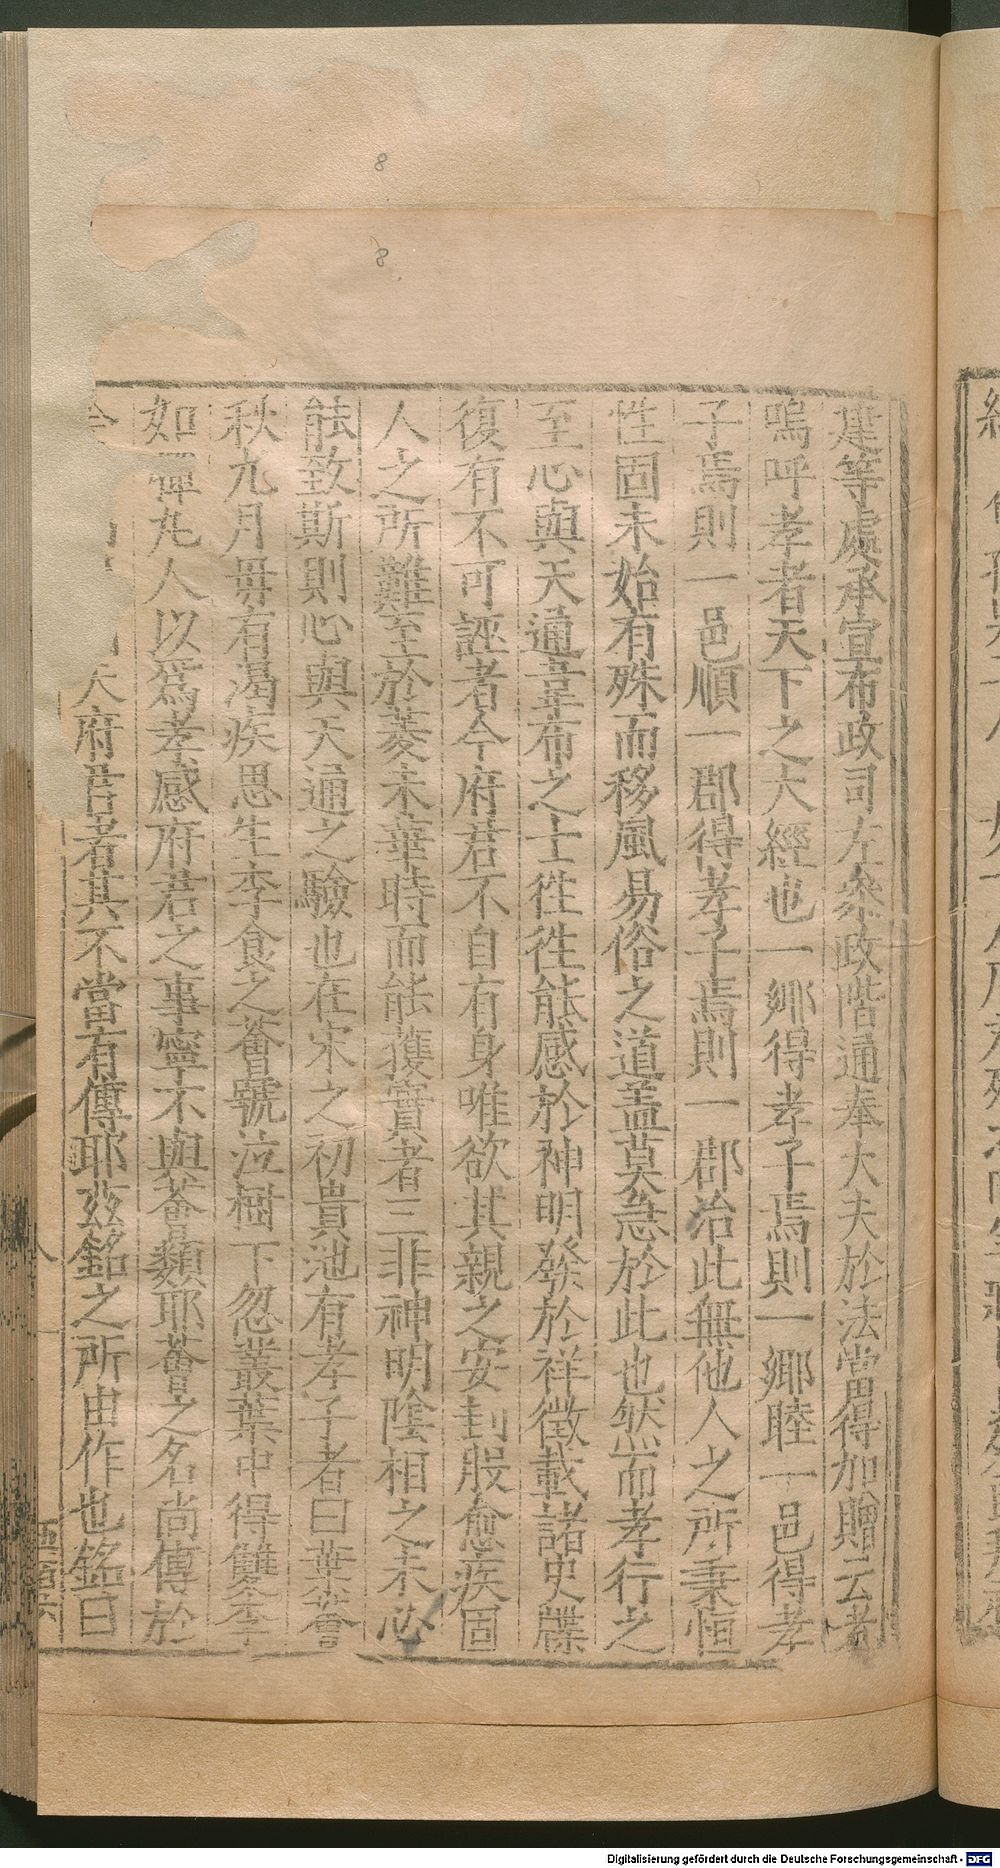 8
8
建等處承宣布政司左叅政階通奉大夫於法當得加贈云者
嗚呼孝者天下之大經也一鄉得孝子焉則一鄉睦一邑得孝
子焉則一邑順一郡得孝子焉則一郡治此無他人之所秉恒
性固未始有殊而移風易俗之道盖莫急於此也然而孝行之
至心與天通韋布之士徃徃能感於神明發於祥徵載諸史牒
復有不可誣者今府君不自有身唯欲其親之安刲股愈疾固
人之所難至於菱未華時而能獲實者三非神明陰相之未必
能致斯則心與天通之驗也在宋之初貴池有孝子者曰葉薈
秋九月毋有渴疾思生李食之薈號泣樹下忽叢葉中得雙李
如彈丸人以爲孝感府君之事寧不與薈類耶薈之名尚傳於
府君者其不當有傳耶兹銘之所由作也銘曰
Digitalisierung gefördert durch die Deutsche Forschungsgemeinschaft - DFG